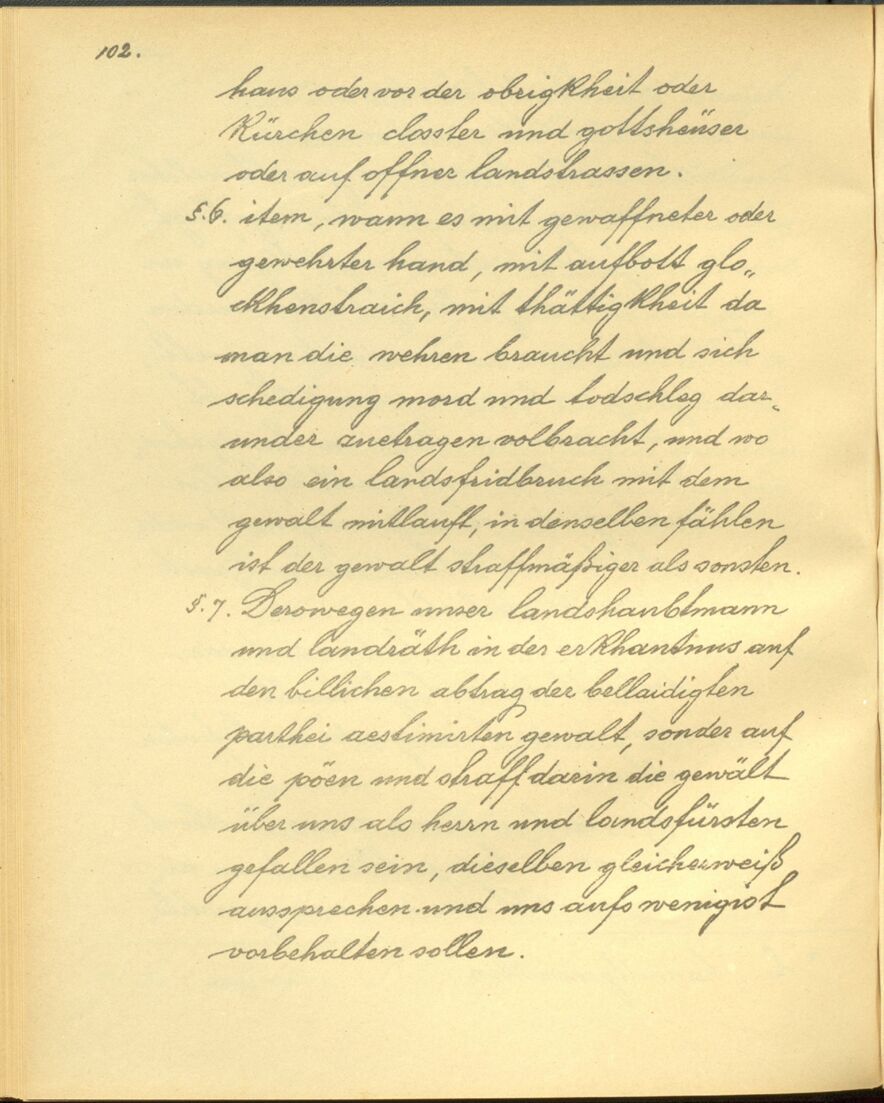 102.
haus oder vor der obrigkheit oder
Kürchen closster und gottsheüser
oder auf offner landstrassen.
§.6. item, wann es mit gewaffneter oder
gewehrter hand, mit aufbott glo„
ckhenstraich, mit thättigkheit da
man die wehren braucht und sich
schedigung mord und todschleg dar„
under zuetragen volbracht, und wo
also ein landsfridbruch mit dem
gewalt mitlauft, in denselben fählen
ist der gewalt straffmäßiger als sonsten.
§.7. Derowegen unser landshaubtmann
und landräth in der erkhantnus auf
den billichen abtrag der bellaidigten
parthei aestimirten gewalt, sonder auf
die pöen und straff darin die gewält
über uns als herrn und landsfürsten
gefallen sein, dieselben gleicherweiß
aussprechen und uns aufs wenigist
vorbehalten sollen.